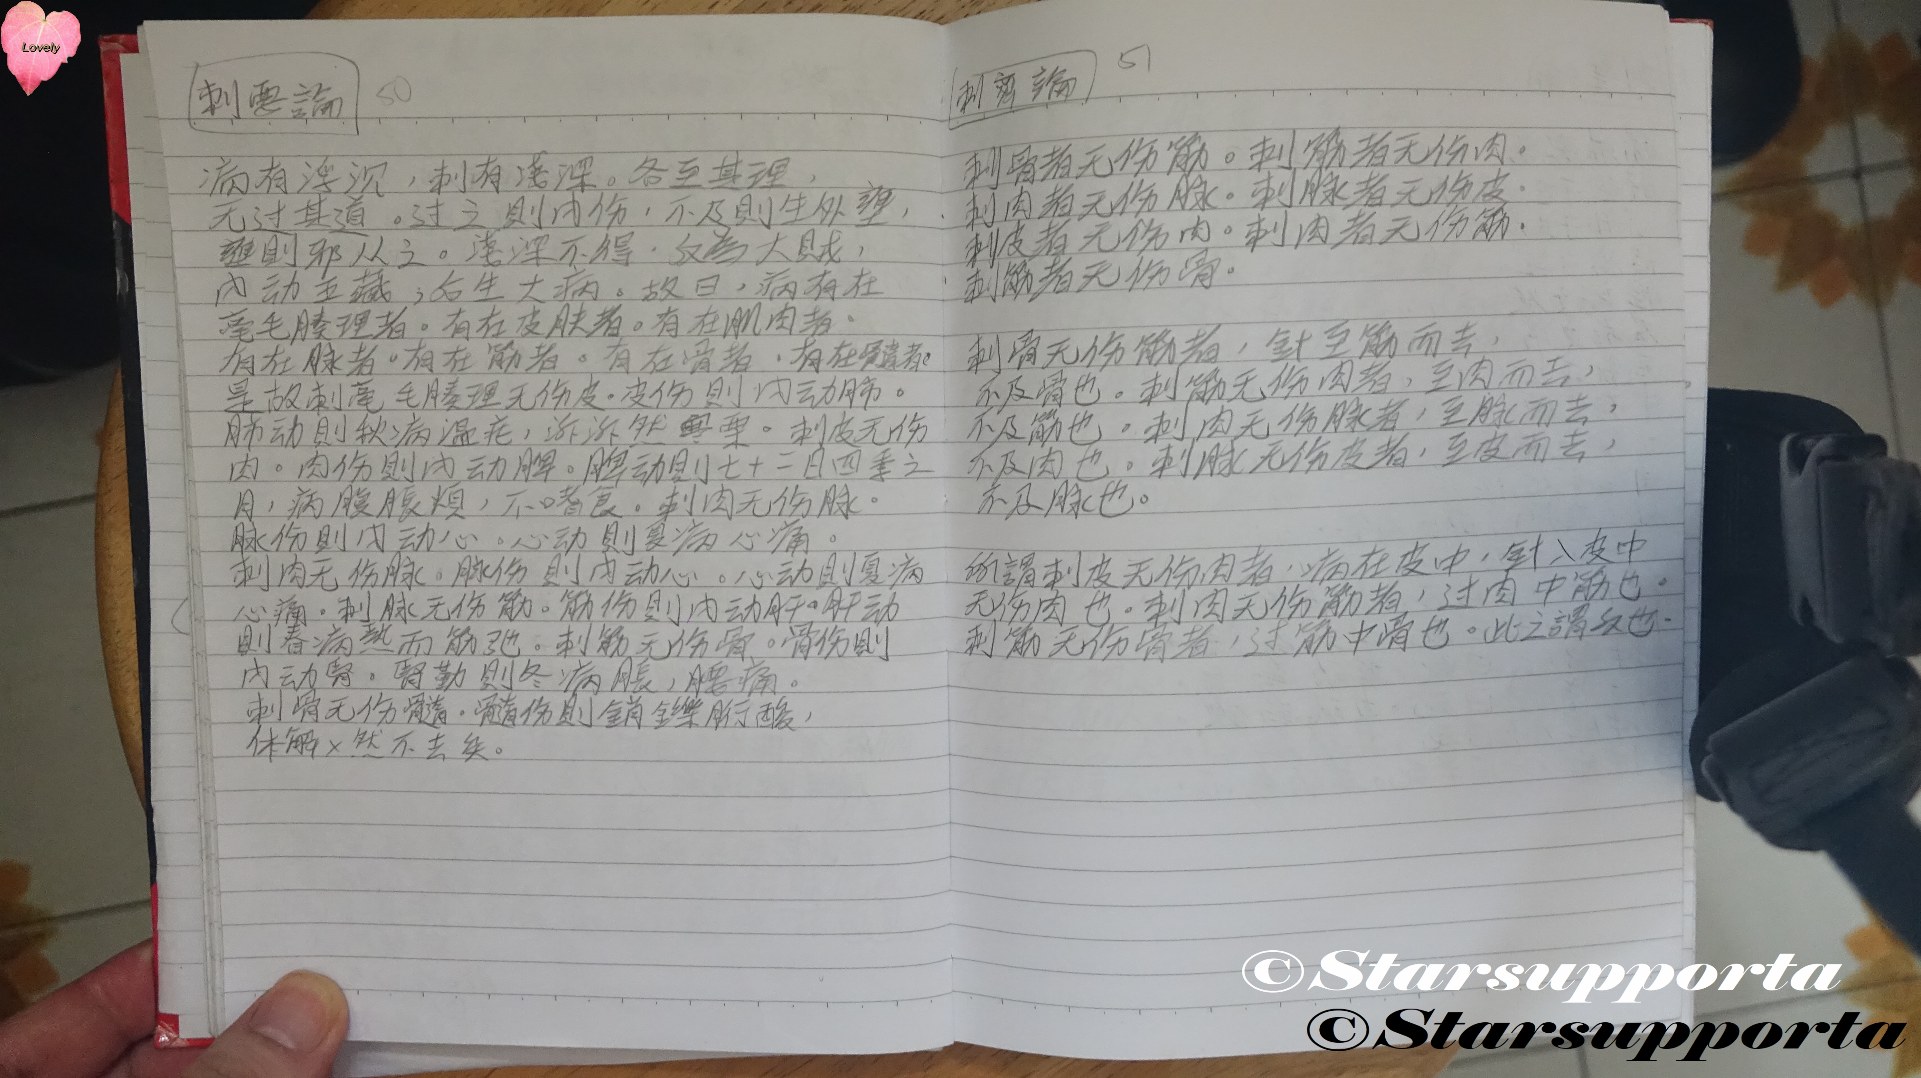 Lovely
刺要論 50
病有浮沉，刺有淺深。各至其理，
无过其道。过之則内伤，不及則生外壅，
壅則邪从之。淺深不得，反為大賊，
内动五藏，后生大病。故曰，病有在
毫毛腠理者。有在皮肤者。有在肌肉者。
有在脉者。有在筋者。有在骨者，有在髓者。
是故刺毫毛腠理无伤皮。皮伤則内动肺。
肺动則秋病温疟，泝泝然寒栗。刺皮无伤
肉。肉伤則内动脾。脾动則七十二日四季之
月，病腹脹煩，不嗜食。刺肉无伤脉。
脉伤則内动心。心动則夏病心痛。
刺肉无伤脉。脉伤則内动心。心动則夏病
心痛。刺脉无伤筋。筋伤則内动肝。肝动
則春病熱而筋弛。刺筋无伤骨。骨伤則
内动腎。腎動則冬病脹，腰痛。
刺骨无伤髓。髓伤則銷鑠胻酸，
体解㐅然不去矣。
刺齊論 51
刺骨者无伤筋。刺筋者无伤肉。
刺肉者无伤脉。刺脉者无伤皮。
刺皮者无伤肉。刺肉者无伤筋。
刺筋者无伤骨。
刺骨无伤筋者，針至筋而去，
不及骨也。刺筋无伤肉者，至肉而去，
不及筋也。刺肉无伤脉者，至脉而去，
不及肉也。刺脉无伤皮者，至皮而去，
不及脉也。
所謂刺皮无伤肉者，病在皮中，針入皮中
无伤肉也。刺肉无伤筋者，过肉中筋也。
刺筋无伤骨者，过筋中骨也。此之謂反也。
©Starsupporta
©Starsupporta